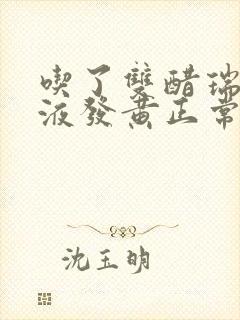 喫了雙醋瑞
液發黃正常
沈玉明